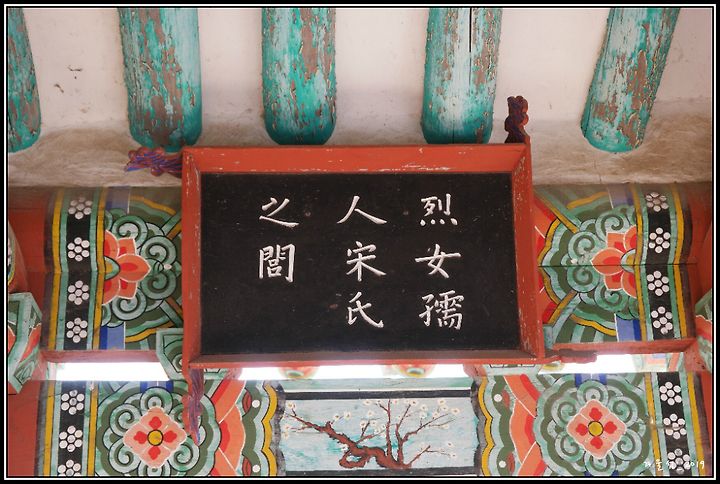 烈女孺
人宋氏
之閭
2019